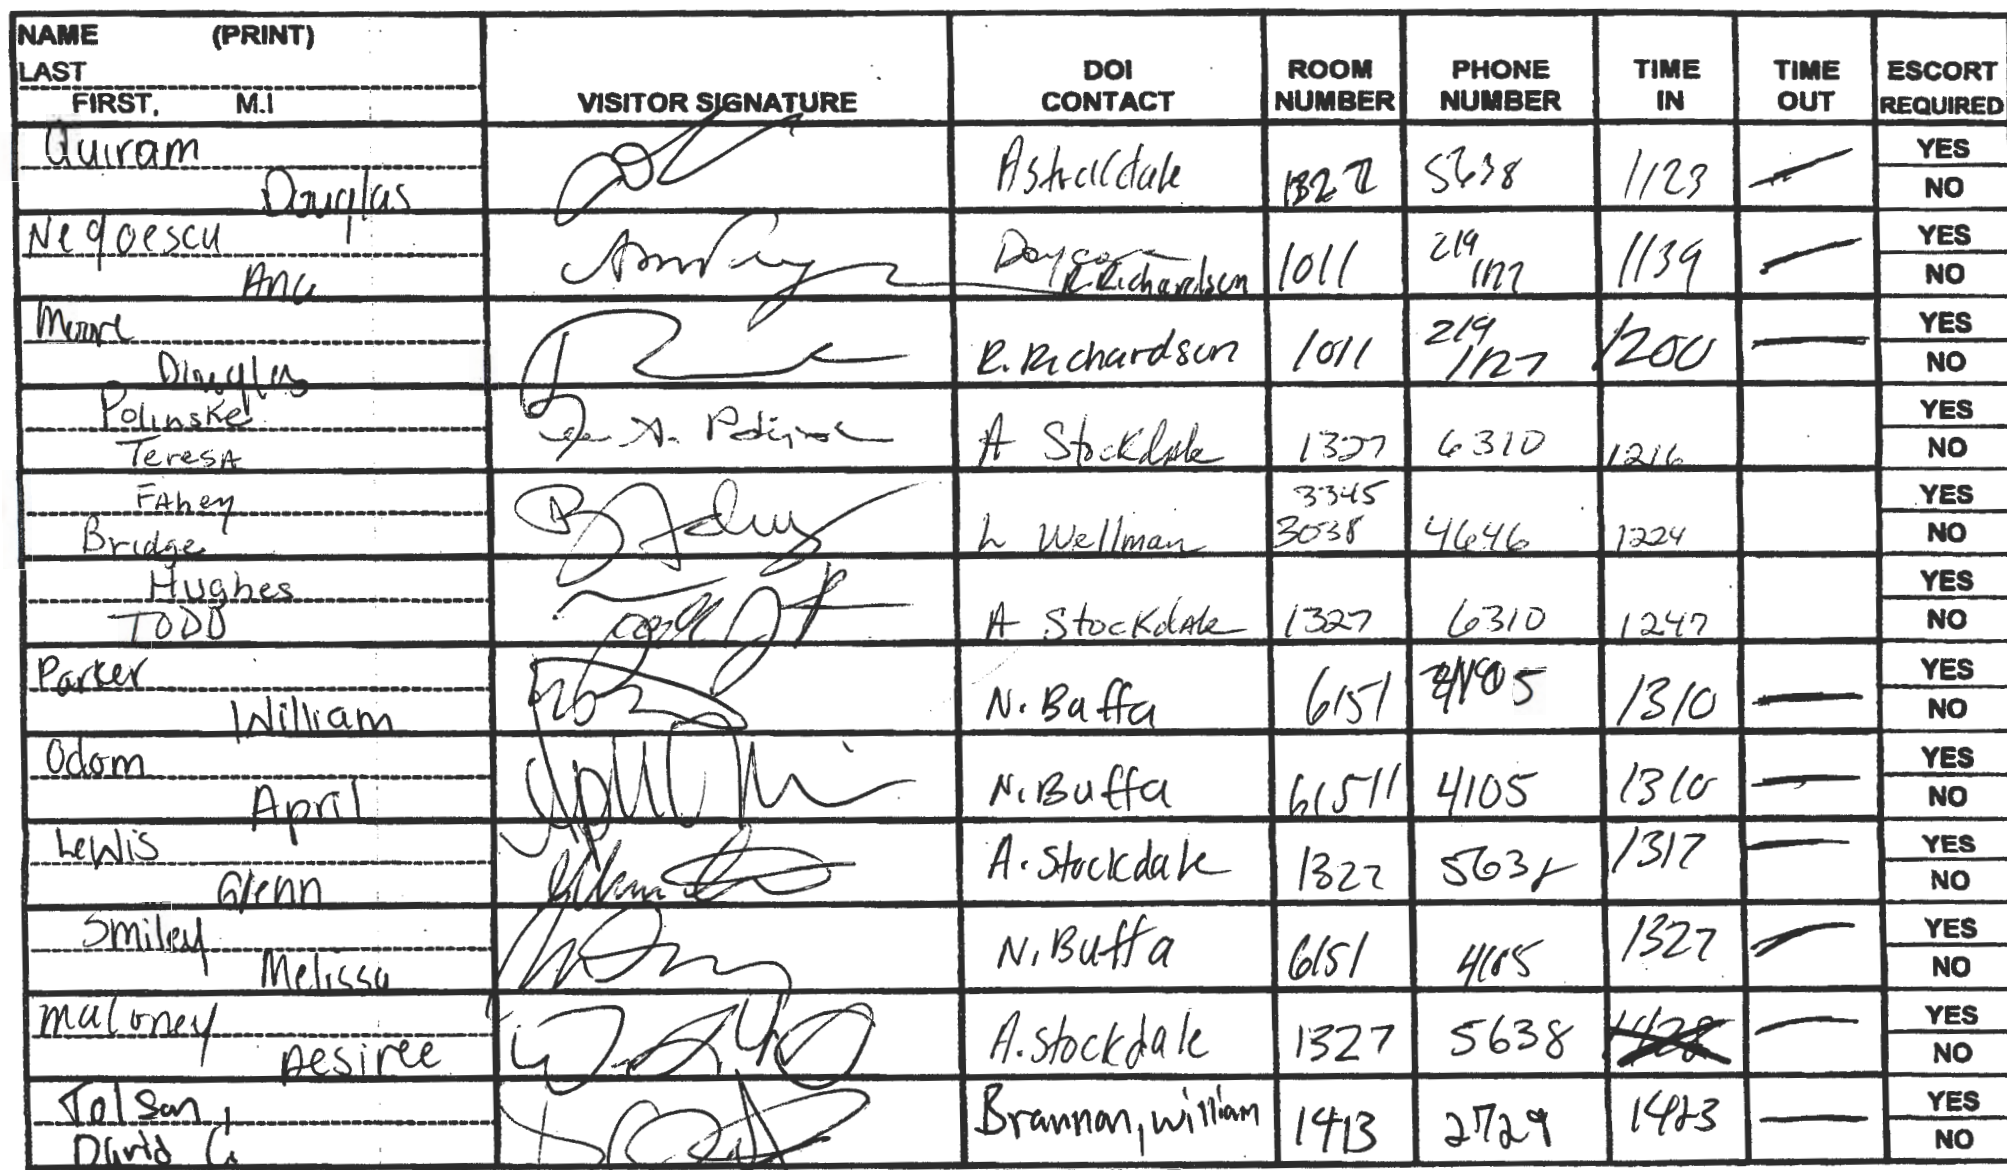 NAME (PRINT)
LAST
FIRST, M.I
VISITOR SIGNATURE
DOI CONTACT
ROOM NUMBER
PHONE NUMBER
TIME IN
TIME OUT
ESCORT REQUIRED
Quiram
Douglas
A Stockdale 1327 5638 1123
YES
NO
Negoescu
Ana
R. Richardson 1011 219 1127 1139
YES
NO
Moore
Douglas
R. Richardson 1011 219 1127 1200
YES
NO
Polinske
Teresa
A Stockdale 1327 6310 1216
YES
NO
Fahey
Bridge
L Wellman 3345 3038 4646 1224
YES
NO
Hughes
TODD
A Stockdale 1327 6310 1247
YES
NO
Parker
William
N. Buffa 6151 1310
YES
NO
Odom
April
N. Buffa 6151 4105 1310
YES
NO
Lewis
Glenn
A. Stockdale 1327 5638 1317
YES
NO
Smiley
Melissa
N. Buffa 6151 4105 1327
YES
NO
Maloney
Desiree
A. Stockdale 1327 5638
YES
NO
David G
Brannan, William 1413 2729 1423
YES
NO